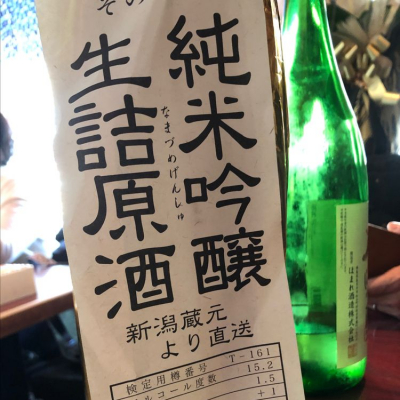 その
純米吟醸
生詰原酒
なまづめげんしゅ
新潟蔵元
より直送
検定用樽番号 T-161
アルコール度数 15.2
1.5
+1
ほまれ酒造株式会社